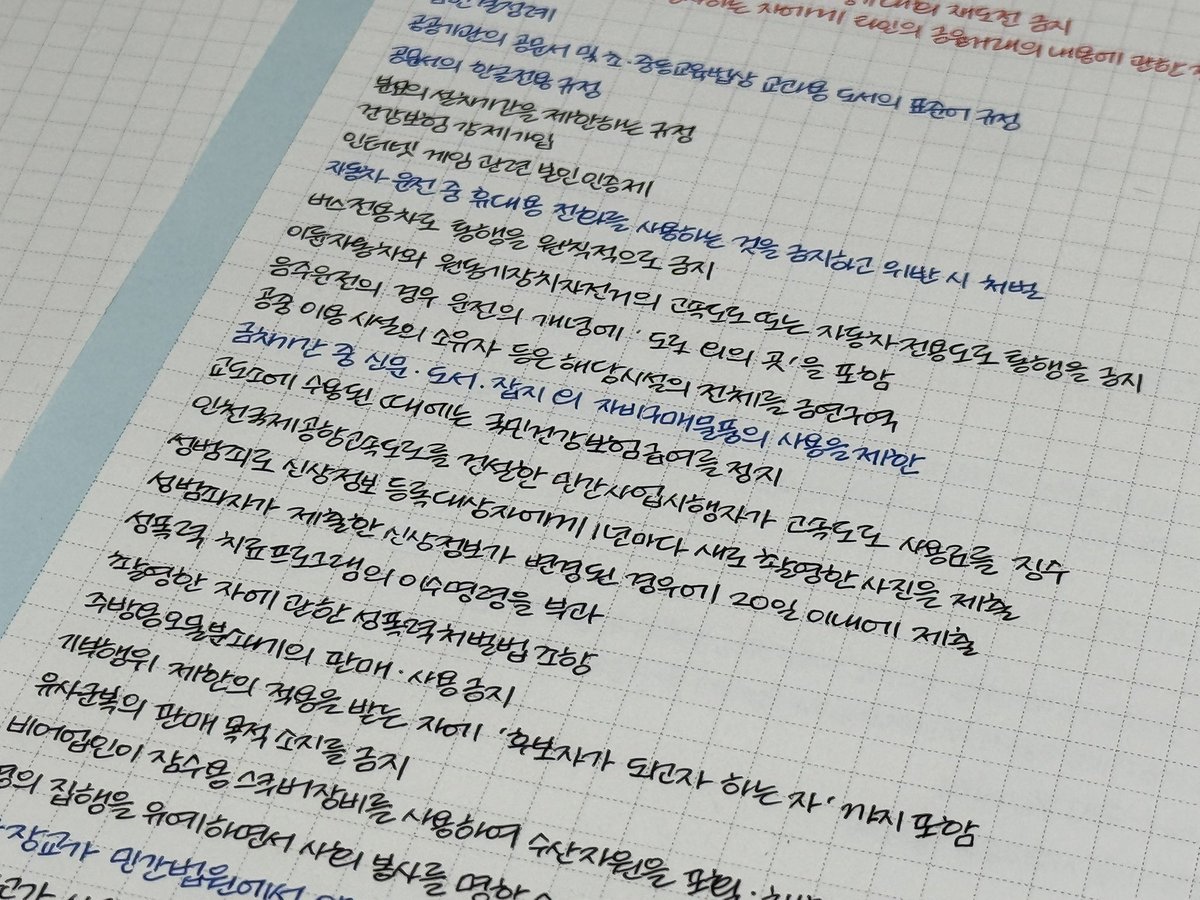 재도전 금지
자에게 타인의 금융거래의 내용에 관한
결정례
공공기관의 공문서 및 초·중등교육법상 교과용 도서의 표준어 규정
공문서의 한글전용 규정
부표의 설치기간을 제한하는 규정
건강보험 강제가입
인터넷 게임 관련 본인인증제
자동차 운전 중 휴대용 전화를 사용하는 것을 금지하고 위반 시 처벌
버스전용차로 통행을 원칙적으로 금지
이륜자동차와 원동기장치자전거의 고속도로 또는 자동차전용도로 통행을 금지
음주운전의 경우 운전의 개념에 '도로 외의 곳'을 포함
공중 이용시설의 소유자 등은 해당시설의 전체를 금연구역
금치기간 중 신문·도서·잡지 외 자비구매물품의 사용을 제한
교도소에 수용된 때에는 국민건강보험급여를 정지
인천국제공항고속도로를 건설한 민간사업시행자가 고속도로 사용료를 징수
성범죄로 신상정보 등록대상자에게 1년마다 새로 촬영한 사진을 제출
성범죄자가 제출한 신상정보가 변경된 경우에 20일 이내에 제출
성폭력 치료프로그램의 이수명령을 부과
촬영한 자에 관한 성폭력처벌법 조항
주방용오물분쇄기의 판매·사용금지
기부행위 제한의 적용을 받는 자에 '후보자가 되고자 하는 자' 까지 포함
유사군복의 판매 목적 소지를 금지
비어업인이 잠수용 스쿠버장비를 사용하여 수산자원을 포획·
의 집행을 유예하면서 사회 봉사를 명할
장교가 민간법원에서